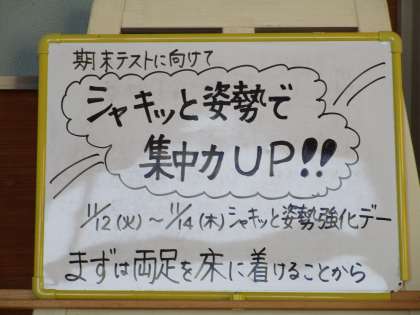 期末テストに向けて
シャキッと姿勢で
集中力UP!!
11/12(火)～11/14(木)シャキッと姿勢強化デー
まずは両足を床に着けることから